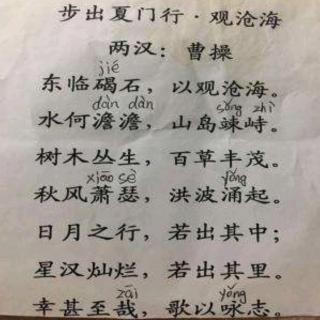 步出夏门行·观沧海
两汉：曹操
jié
东临碣石，以观沧海。
dàn dàn sǒng zhì
水何澹澹，山岛竦峙。
树木丛生，百草丰茂。
xiāo sè yǒng
秋风萧瑟，洪波涌起。
日月之行，若出其中；
星汉灿烂，若出其里。
zāi yǒng
幸甚至哉，歌以咏志。